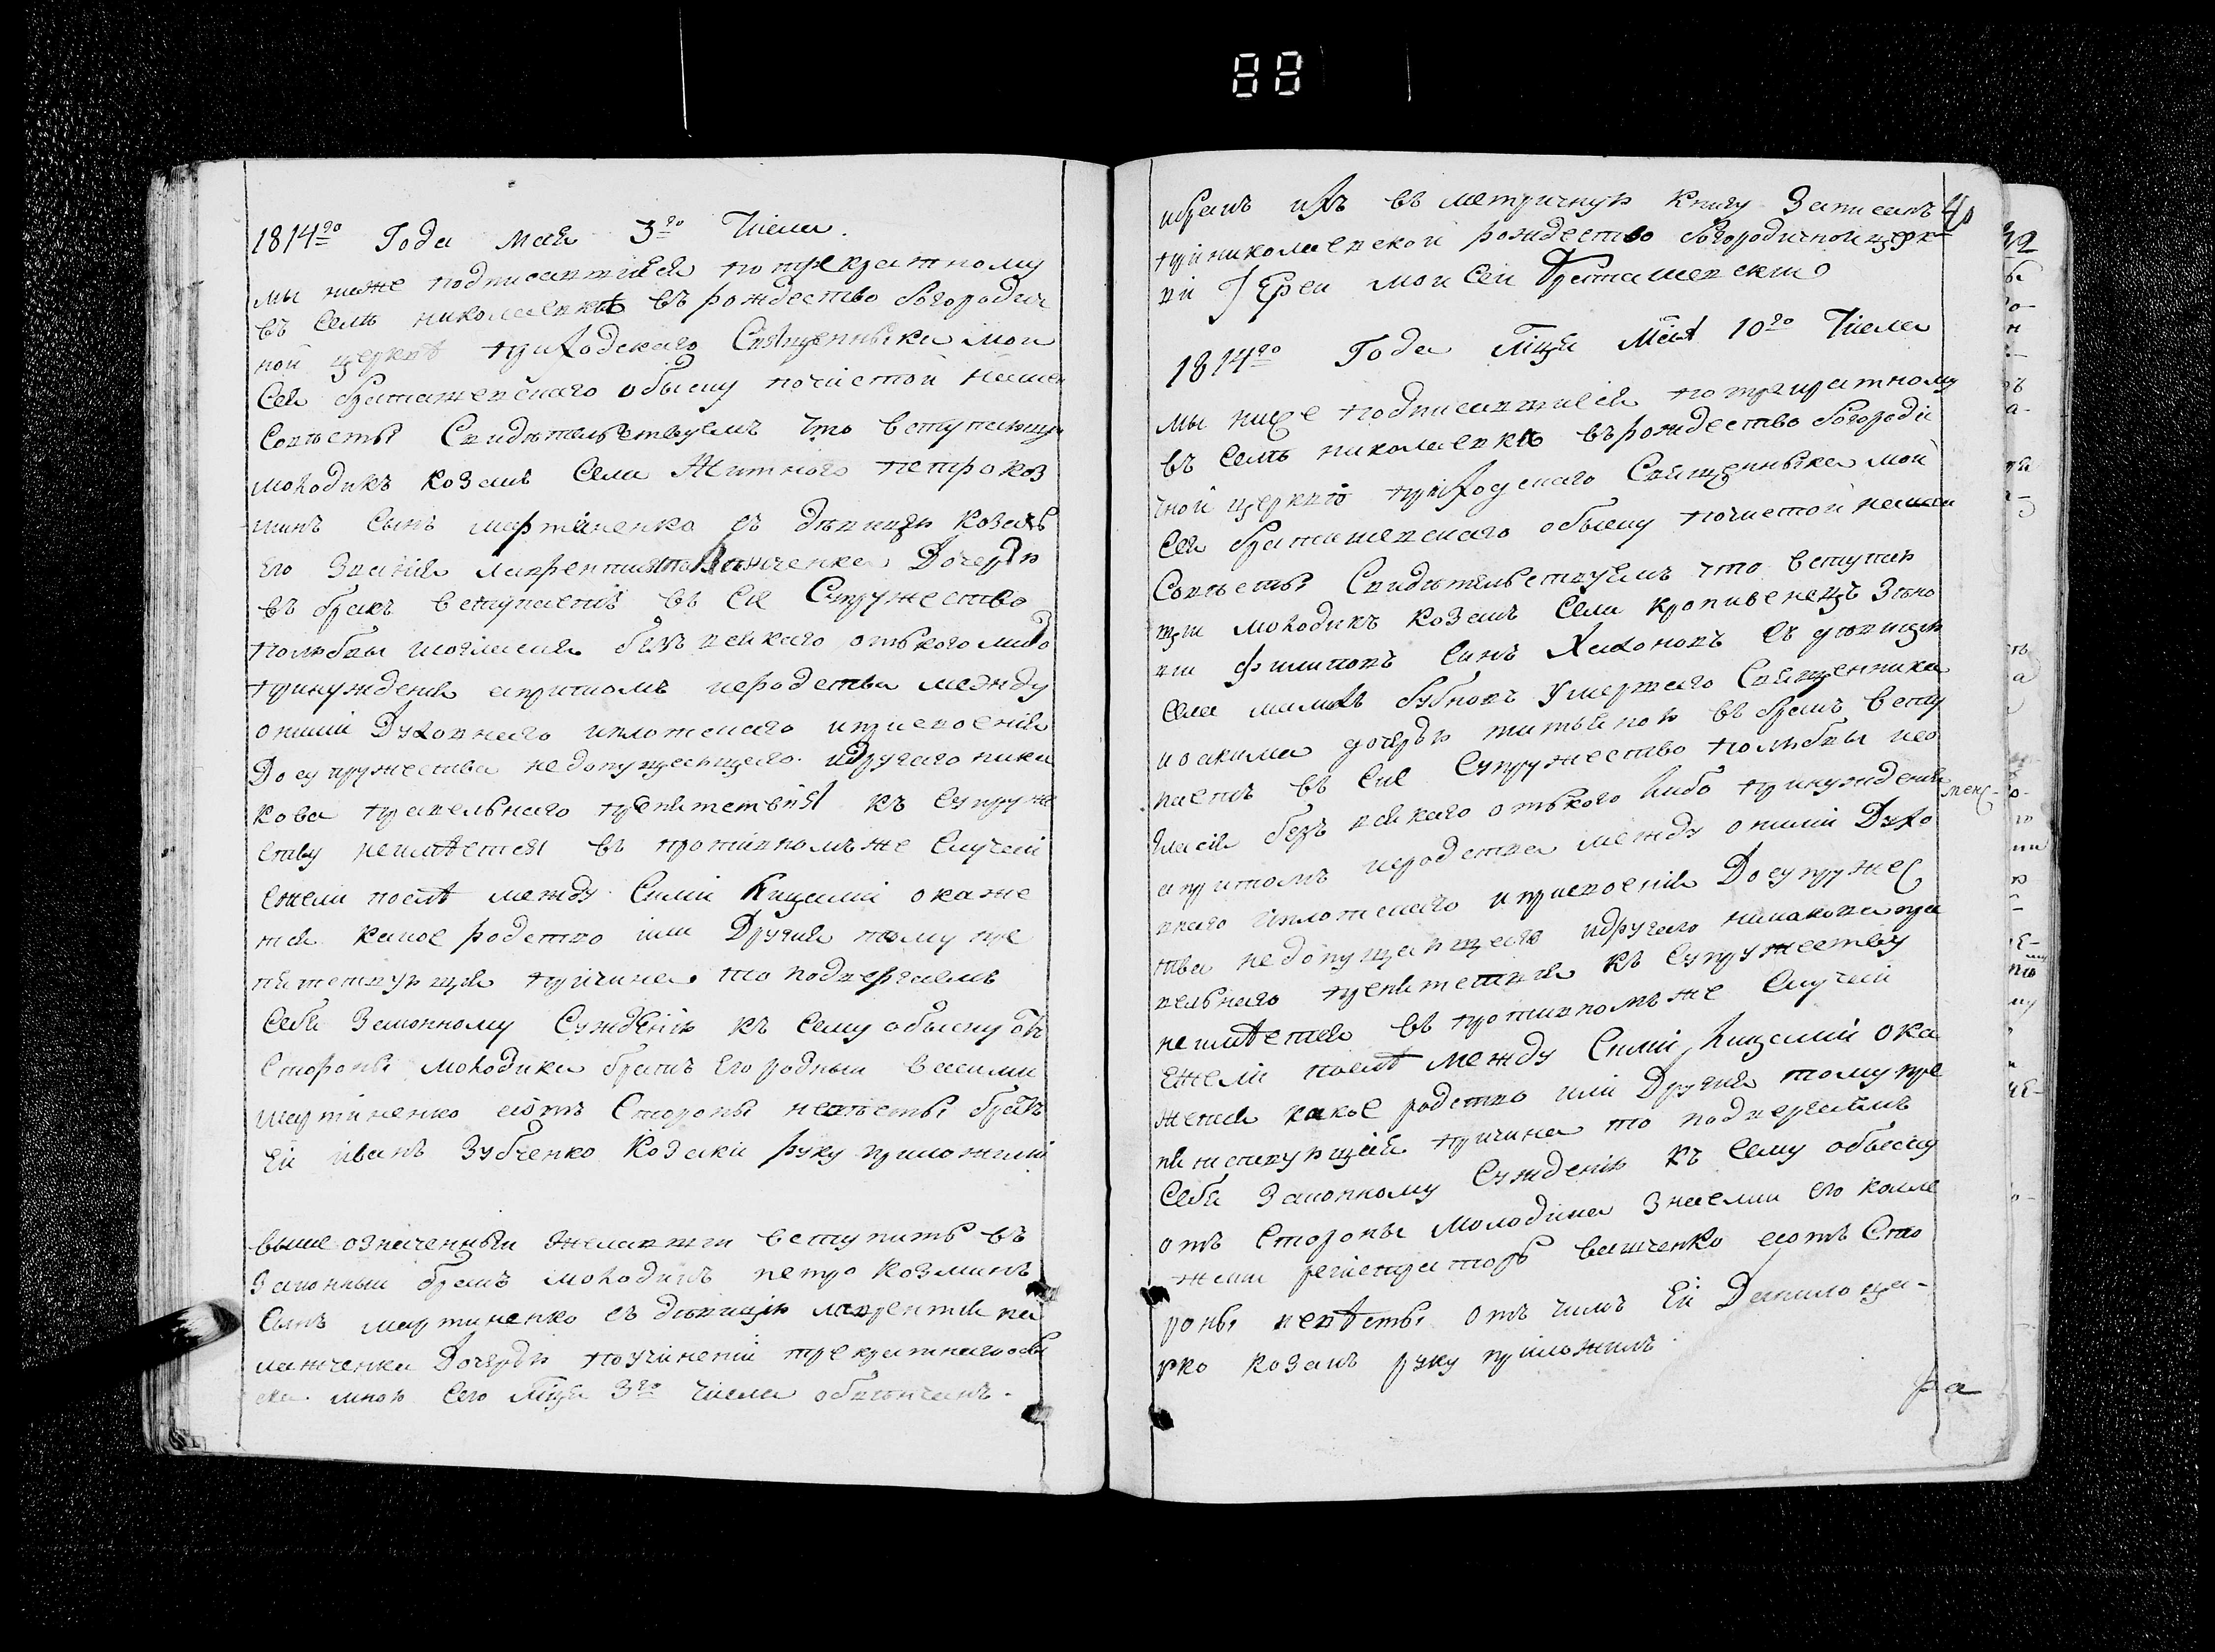 88
1814го Года мая 3го Числа.
мы ниже подписавшиеся по трекратному
въ селѣ николаевкѣ въ рождество богородич
ной церквѣ приходскаго Священныка мои
сея браташевскаго обыску по чистой нашей
совѣсты Свидѣтельствуемъ что вступающи
молодикъ козакъ села Житного петро коз
минъ сынъ мартиненко съ дѣвицею козачъ
его званія лаврентия Дочерью
въ бракъ вступаетъ въ сіе Супружество
по любвы и согласия безъ всякаго отъ кого либо
принуждения а притомъ и сродства между
оними Духовнаго и плотскаго и присвоения
До супружества недопущающаго и другаго ника
кова правельнаго препятствія къ супруже
ству неимѣется въ противномъ же случаи
ежели послѣ между Сими Лицами окаже
тся какое родство или Другия тому пре
пятствующия причина то подвергаемъ
Себя Законному Суждению къ сему обыску отъ
Стороны молодика братъ его родный василии
мартиненко а отъ Стороны невѣсты братъ
Ей иванъ Зубченко козаки руку приложили
выше означенныи желавши вступить въ
Законный бракъ молодикъ петро козминъ
Сынъ мартиненко съ дѣвицею лаврентия ка
ланченка Дочерью по учинении трекратнаго обы
ска мною сего мца 3го числа обвѣнчанъ.
и бракъ ихъ въ метричную книгу записанъ 40
при николаевской рождество богородичной церк
ви Іереи моисеи Браташевски
1814го Года мца Мая 10го Числа
мы ниже подписавшиеся по трекратному
въ селѣ николаевкѣ въ рождество богороди
чной церквѣ приходскаго Священныка мои
сея браташевскаго обыску по чистой нашей
Совѣсты Свидѣтельствуемъ что вступаю
щи молодикъ козакъ села кропивенецъ Зѣно
ви филиповъ синъ Халоновъ съ дѣвицею
села малыхъ бубновъ умершаго Священника
иоакима дочерью татьяною въ бракъ всту
паетъ въ сие супружество по любвы и со
гласия безъ всякаго отъ кого либо принуждения
а притомъ и сродства между оними Духо
внаго и плотскаго и присвоения До супружес
тва недопущающаго и другаго никакова пра
вельнаго препятствия къ супружеству
неимѣется въ противномъ же случаи
ежели послѣ между Сими Лицами ока
жется какое родство или Другия тому пре
пятствующия причина то подвергаемъ
себя Законному Суждению къ сему обыску
отъ Стороны молодика его колле
жски регистраторъ а отъ Сто
роны невѣсты отъ чимъ Ей Данило ца-
рко козакъ руку приложилъ.
ра